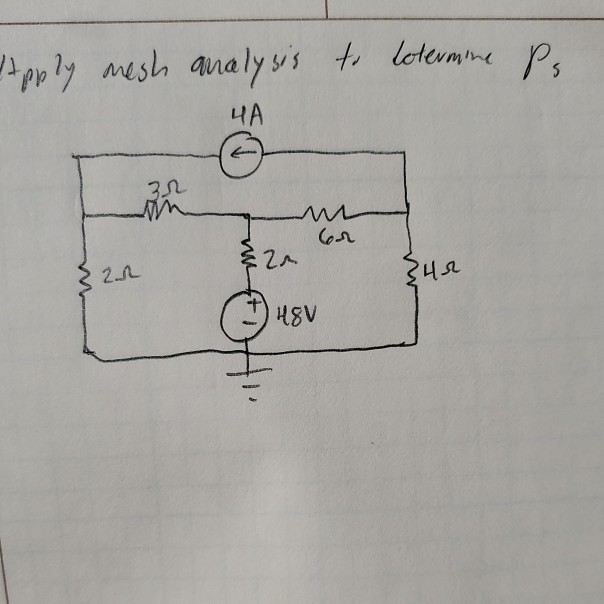 Apply mesh analysis to determine Ps
4A
3Ω
6Ω
2Ω
2Ω
4Ω
+
48V
-